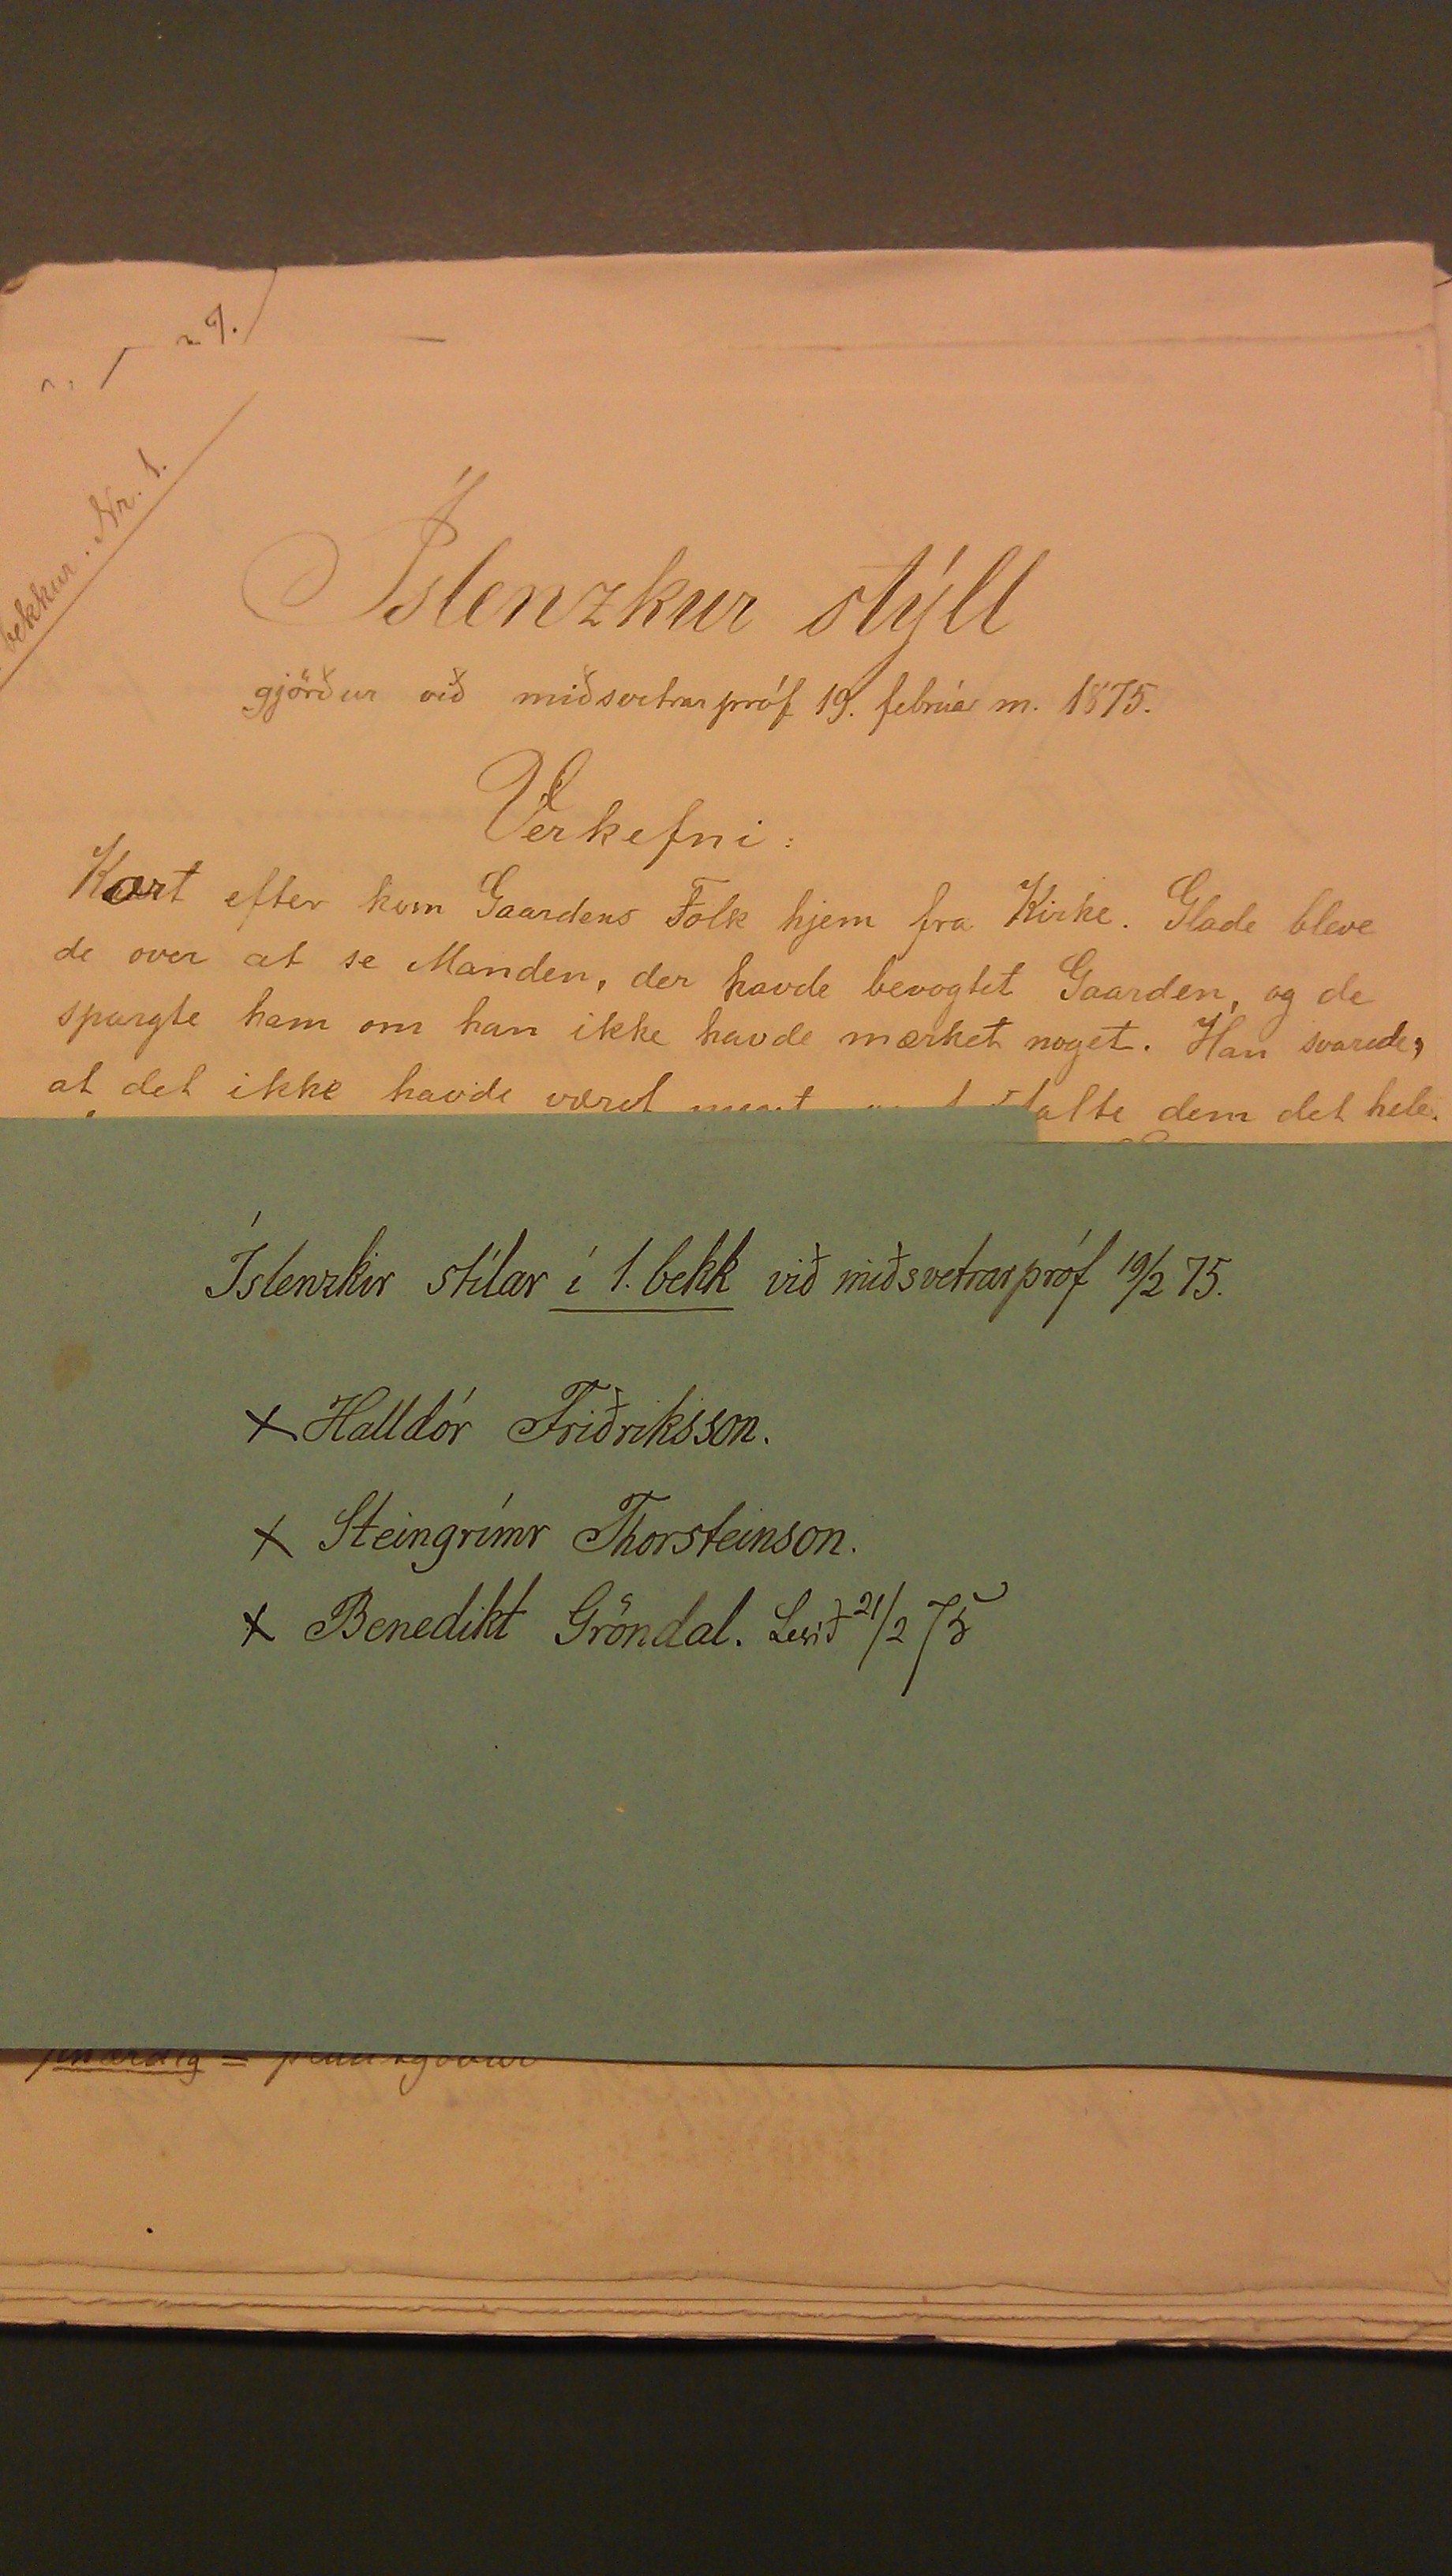 bekkur. Nr. 1.
Íslenzkur stýll
gjörður við miðsvetrarpróf 19. febrúar m. 1875.
Verkefni:
Kort efter kom Gaardens Folk hjem fra Kirke. Glade bleve
de over at se Manden, der havde bevogtet Gaarden, og de
spurgte ham om han ikke havde mærket noget. Han svarede,
at det ikke havde været talte dem det hele.
Íslenzkir stílar í 1. bekk við miðsvetrarpróf 19/2 75.
x Halldór Friðriksson.
x Steingrímr Thorsteinson.
x Benedikt Gröndal. Lesið 21/2 75